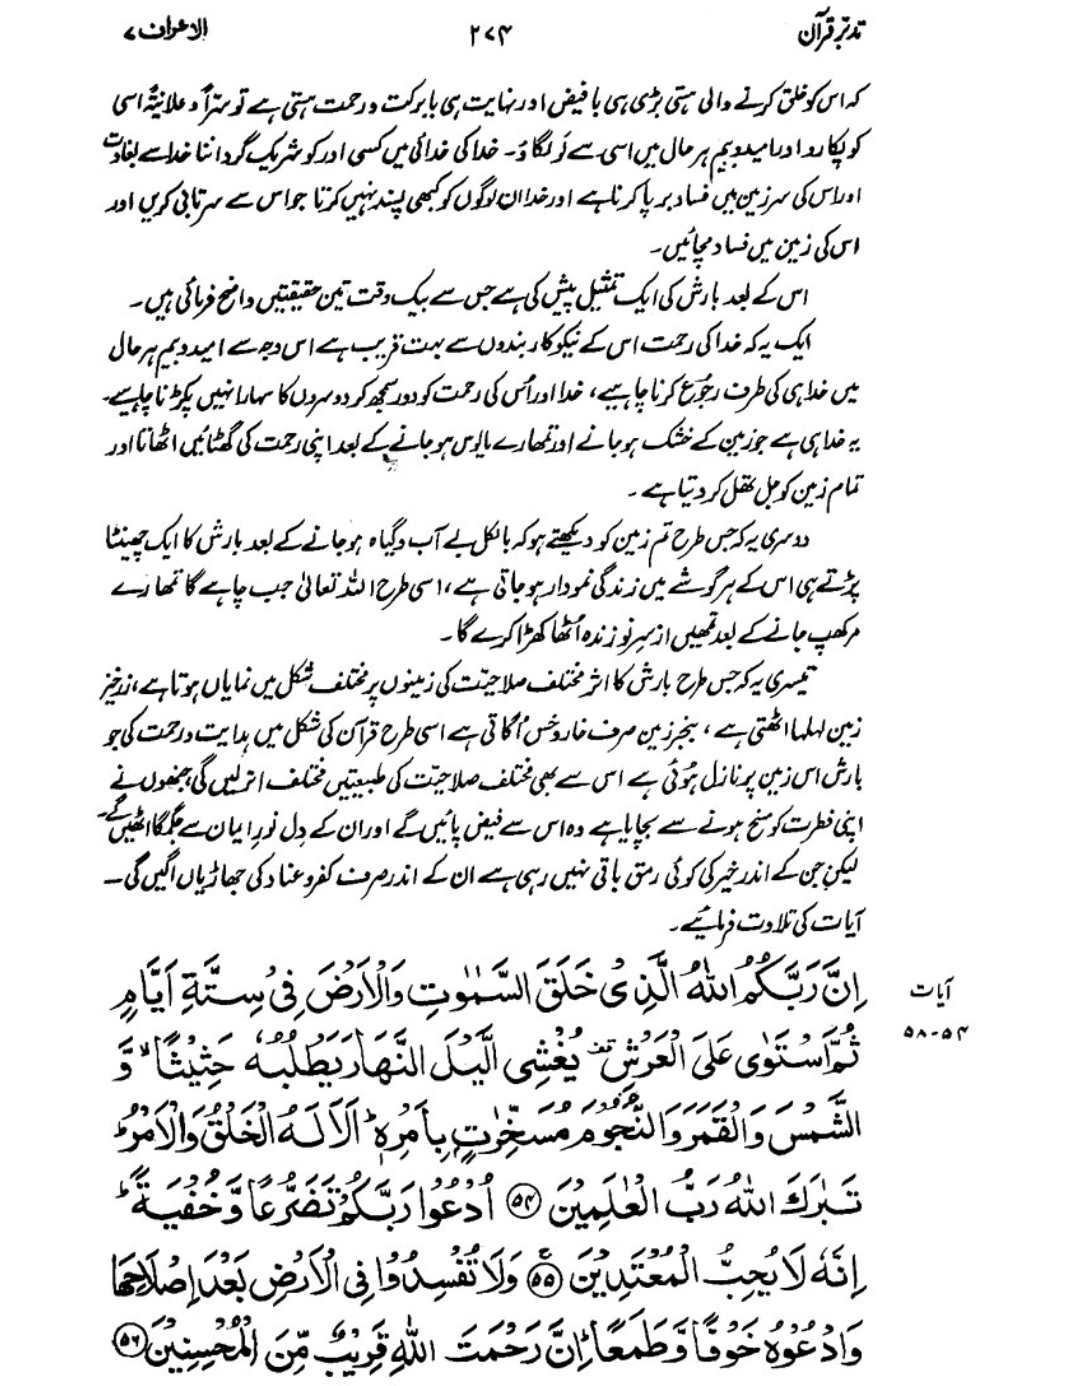 تدبر قرآن ۲۷۴ الاعراف ۷
کہ اس کو خلق کرنے والی ہستی بڑی ہی بافیض اور نہایت ہی بابرکت و رحمت ہستی ہے تو سرّاً و علانیۃً اسی
کو پکارو اور امید و بیم ہر حال میں اسی سے لَو لگاؤ۔ خدا کی خدائی میں کسی اور کو شریک گرداننا خدا سے بغاوت
اور اس کی سرزمین میں فساد برپا کرنا ہے اور خدا ان لوگوں کو کبھی پسند نہیں کرتا جو اس سے سرتابی کریں اور
اس کی زمین میں فساد مچائیں۔
اس کے بعد بارش کی ایک تمثیل پیش کی ہے جس سے بیک وقت تین حقیقتیں واضح فرمائی ہیں۔
ایک یہ کہ خدا کی رحمت اس کے نیکوکار بندوں سے بہت قریب ہے اس وجہ سے امید و بیم ہر حال
میں خدا ہی کی طرف رجوع کرنا چاہیے، خدا اور اُس کی رحمت کو دور سمجھ کر دوسروں کا سہارا نہیں پکڑنا چاہیے۔
یہ خدا ہی ہے جو زمین کے خشک ہو جانے اور تمھارے مایوس ہو جانے کے بعد اپنی رحمت کی گھٹائیں اٹھاتا اور
تمام زمین کو جل تھل کر دیتا ہے۔
دوسری یہ کہ جس طرح تم زمین کو دیکھتے ہو کہ بالکل بے آب و گیاہ ہو جانے کے بعد بارش کا ایک چھینٹا
پڑتے ہی اس کے ہر گوشے میں زندگی نمودار ہو جاتی ہے، اسی طرح اللہ تعالیٰ جب چاہے گا تمھارے
مرکھپ جانے کے بعد تمھیں از سرِ نو زندہ اُٹھا کھڑا کرے گا۔
تیسری یہ کہ جس طرح بارش کا اثر مختلف صلاحیّت کی زمینوں پر مختلف شکل میں نمایاں ہوتا ہے، زرخیز
زمین لہلہا اٹھتی ہے، بنجر زمین صرف خار و خس اُگاتی ہے اسی طرح قرآن کی شکل میں ہدایت و رحمت کی جو
بارش اس زمین پر نازل ہوئی ہے اس سے بھی مختلف صلاحیّت کی طبیعتیں مختلف اثر لیں گی، جنھوں نے
اپنی فطرت کو مسخ ہونے سے بچایا ہے وہ اس سے فیض پائیں گے اور ان کے دِل نورِ ایمان سے جگمگا اٹھیں گے۔
لیکن جن کے اندر خیر کی کوئی رمق باقی نہیں رہی ہے ان کے اندر صرف کفر و عناد کی جھاڑیاں اگیں گی۔
آیات کی تلاوت فرمائیے۔
آیات
۵۴-۵۸
اِنَّ رَبَّكُمُ اللّٰهُ الَّذِیْ خَلَقَ السَّمٰوٰتِ وَالْاَرْضَ فِیْ سِتَّةِ اَیَّامٍ
ثُمَّ اسْتَوٰی عَلَی الْعَرْشِ یُغْشِی الَّیْلَ النَّهَارَ یَطْلُبُهٗ حَثِیْثًا ۙ وَّ
الشَّمْسَ وَالْقَمَرَ وَالنُّجُوْمَ مُسَخَّرٰتٍۭ بِاَمْرِهٖ ؕ اَلَا لَهُ الْخَلْقُ وَالْاَمْرُ ؕ
تَبٰرَكَ اللّٰهُ رَبُّ الْعٰلَمِیْنَ ﴿۵۴﴾ اُدْعُوْا رَبَّكُمْ تَضَرُّعًا وَّخُفْیَةً ؕ
اِنَّهٗ لَا یُحِبُّ الْمُعْتَدِیْنَ ﴿۵۵﴾ وَلَا تُفْسِدُوْا فِی الْاَرْضِ بَعْدَ اِصْلَاحِهَا
وَادْعُوْهُ خَوْفًا وَّطَمَعًا ؕ اِنَّ رَحْمَتَ اللّٰهِ قَرِیْبٌ مِّنَ الْمُحْسِنِیْنَ ﴿۵۶﴾